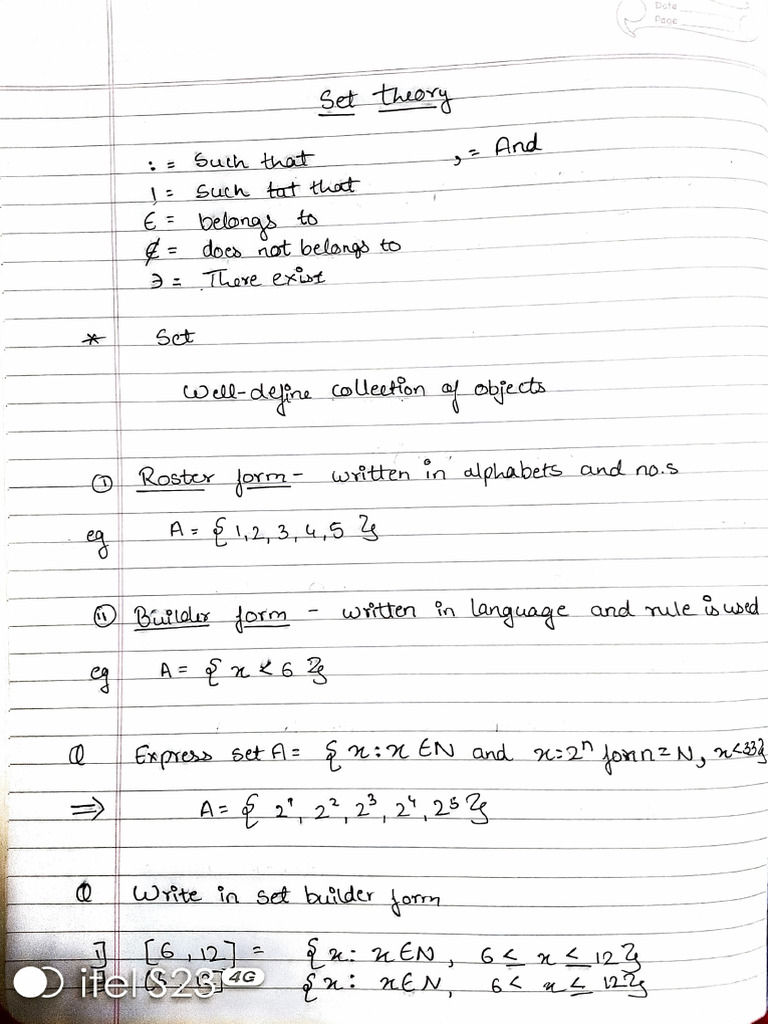 Date
Page
Set theory
: = Such that , = And
| = Such tat that
∈ = belongs to
∉ = does not belongs to
∋ = There exist
* Set
Well-define collection of objects
(i) Roster form - written in alphabets and no.s
eg A = {1,2,3,4,5}
(ii) Builder form - written in language and rule is used
eg A = {x < 6}
Q Express set A = {x : x ∈ N and x = 2ⁿ for n = N, x < 33}
⇒ A = {2¹, 2², 2³, 2⁴, 2⁵}
Q Write in set builder form
i] [6, 12] = {x : x ∈ N, 6 ≤ x ≤ 12}
{x : x ∈ N, 6 < x ≤ 12}
itel S23 4G